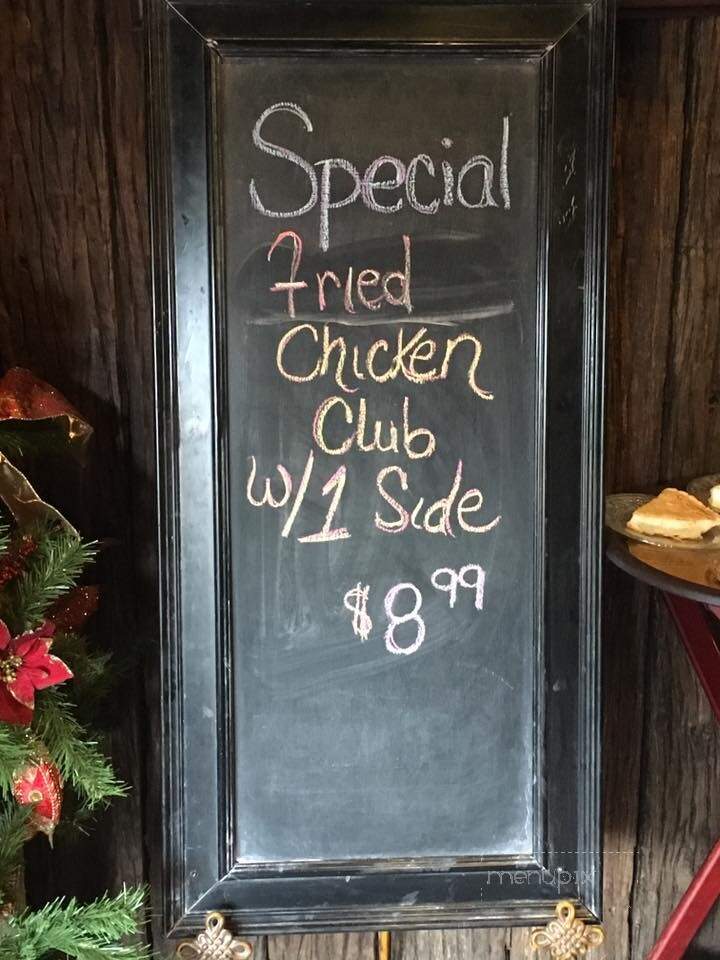 Special
Fried
Chicken
Club
w/1 Side
$8.99
menupix